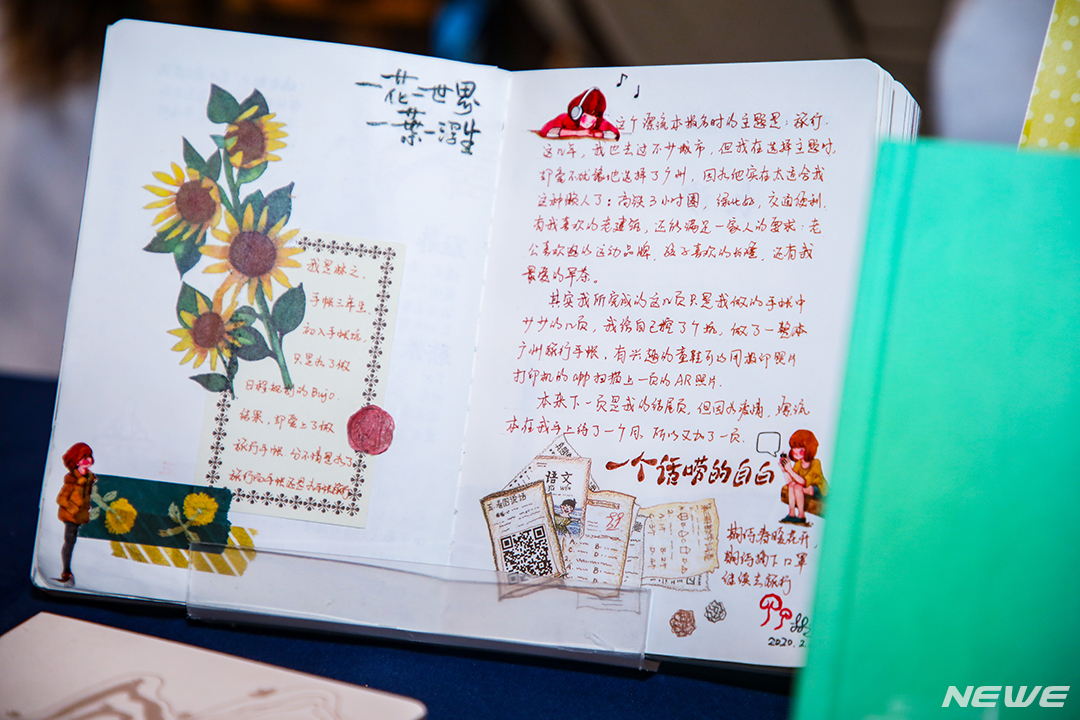 一花一世界
一葉一浮生
我是林之，
手帐三年生，
初入手帐坑，
只是为了做
日程规划的Bujo.
结果，却爱上了做
旅行手帐，分不清是为了
旅行而手帐还是为手帐旅行
这个漂流本报名时的主题是：旅行.
这几年，我也去过不少城市，但我在选择主题时，
却毫不犹豫地选择了广州，因为他实在太适合我
这种懒人了：高铁3小时圈，绿化好，交通便利，
有我喜欢的老建筑，还能满足一家人的要求：老
公喜欢逛的运动品牌，孩子喜欢的长隆，还有我
最爱的早茶。
其实我所完成的这几页只是我做的手帐中
少少的几页，我给自己挖了个坑，做了一整本
广州旅行手帐，有兴趣的童鞋可以用拍印照片
打印机的app扫描上一页的AR照片.
本来下一页是我的结尾页，但因为疫情，漂流
本在我手上待了一个月，所以又加了一页.
一个话唠的自白
语文
期待春暖花开，
期待摘下口罩
继续去旅行
2020.2
NEWE